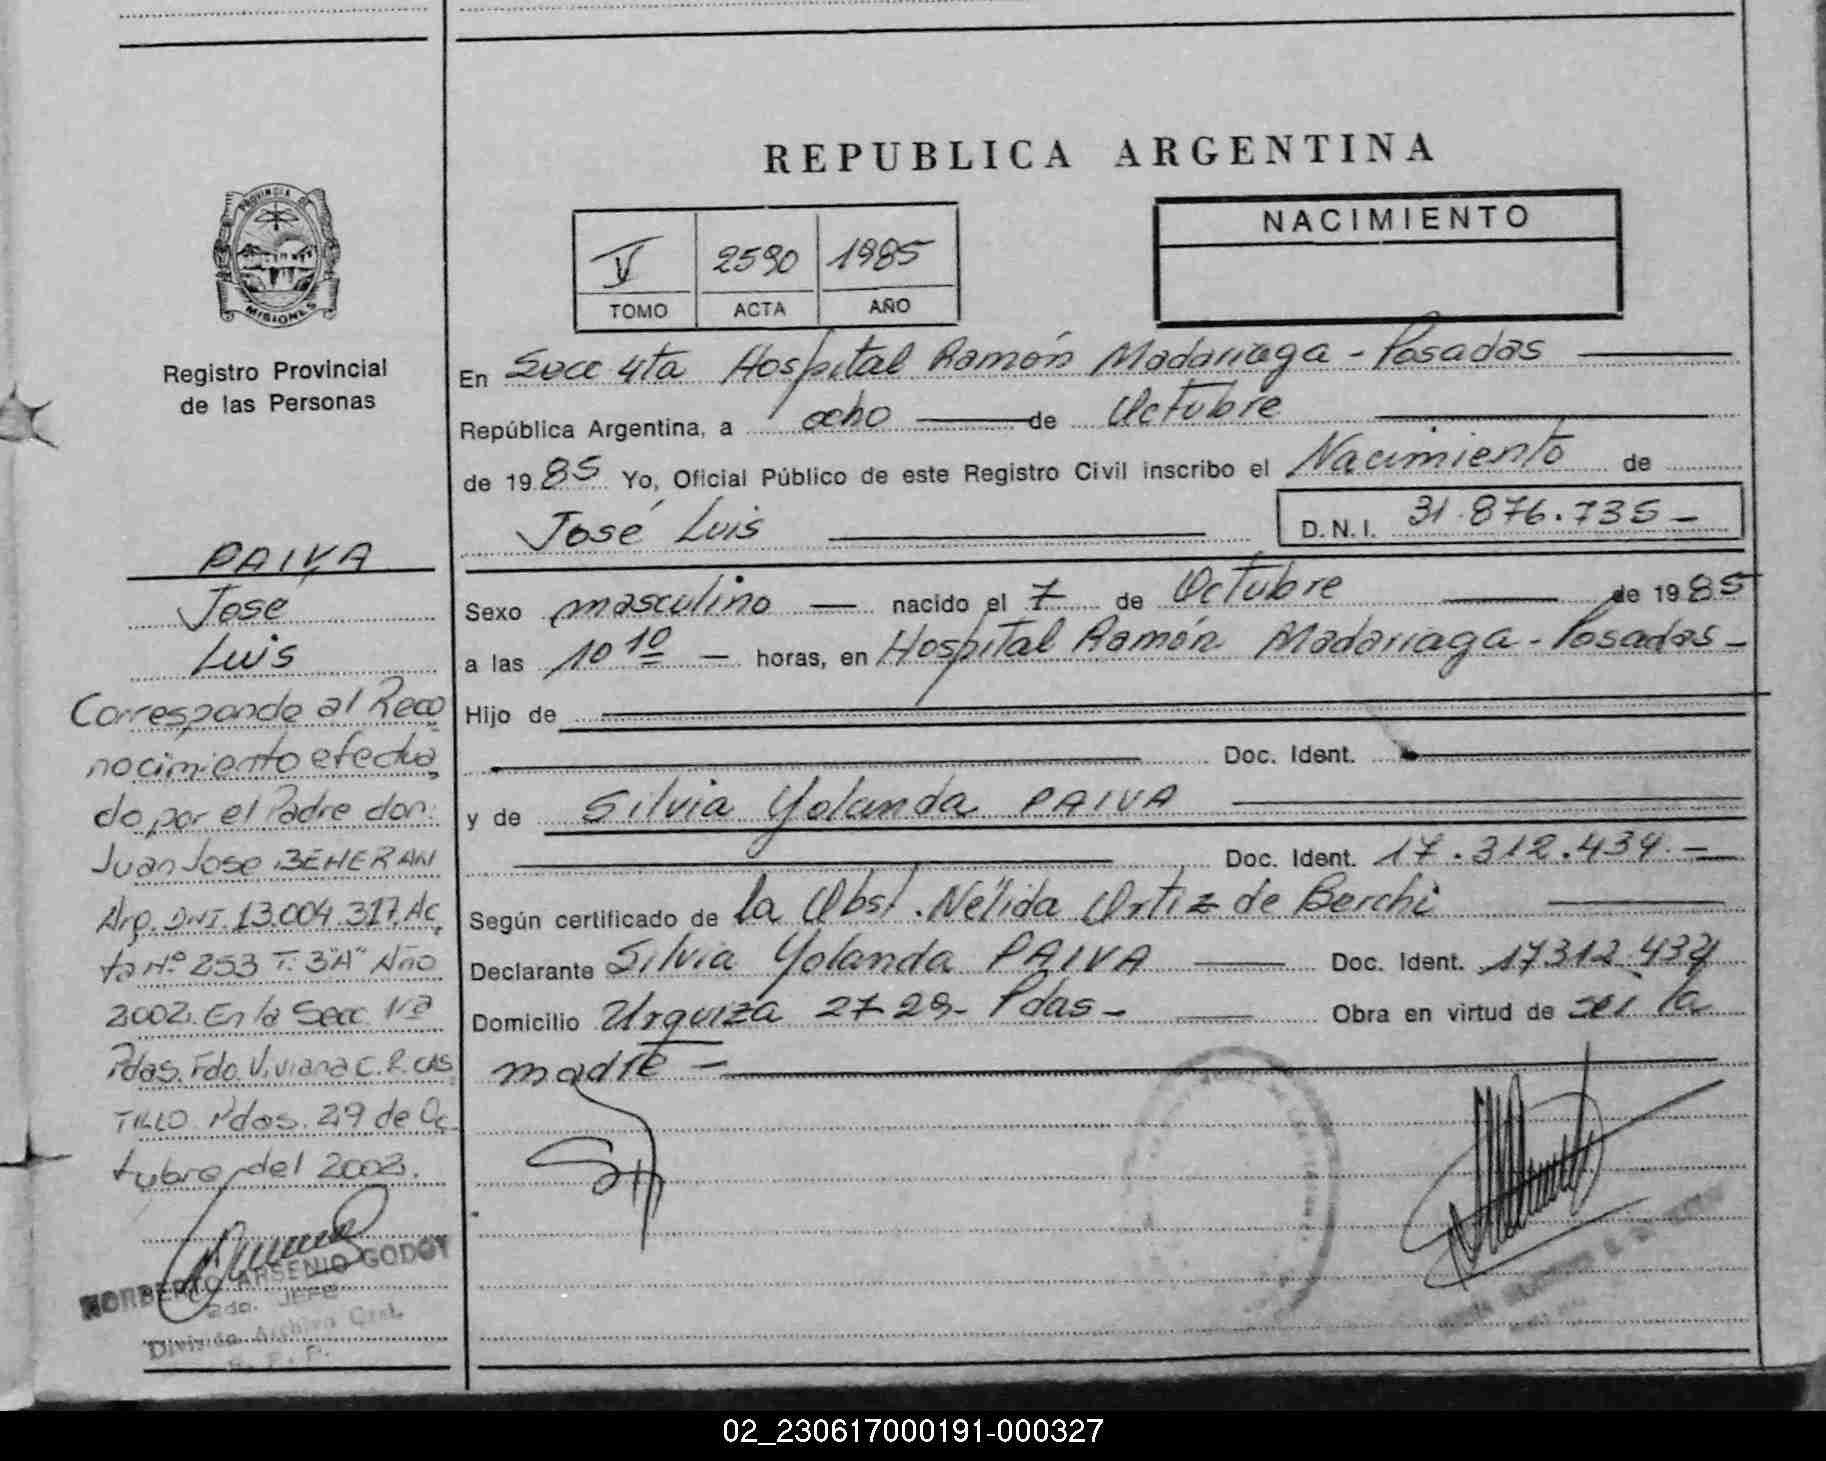 REPUBLICA ARGENTINA
PROVINCIA DE
MISIONES
Registro Provincial
de las Personas
V 2590 1985
TOMO ACTA AÑO
NACIMIENTO
En Secc 4ta Hospital Ramón Madariaga - Posadas
República Argentina, a ocho de Octubre
de 1985 Yo, Oficial Público de este Registro Civil inscribo el Nacimiento de
José Luis D.N.I. 31.876.735-
Sexo masculino — nacido el 7 de Octubre de 1985
a las 10 10 — horas, en Hospital Ramón Madariaga - Posadas -
Hijo de
Doc. Ident.
y de Silvia Yolanda PAIVA
Doc. Ident. 17.312.434.-
Según certificado de la Obst. Nélida Ortiz de Berchi
Declarante Silvia Yolanda PAIVA Doc. Ident. 17312.434
Domicilio Urquiza 2729- Pdas- Obra en virtud de ser la
madre -
PAIVA
José
Luis
Corresponde al Reco
nocimiento efectua
do por el Padre don:
Juan Jose BEHERAN
Arg. DNI. 13.004.317. Ac
ta Nº 253 T. 3"A" Año
2002. En la Secc. 1ra
Pdas. Fdo. Viviana C. R. CAS
TILLO. Pdas. 29 de Oc
tubre del 2002.
NORBERTO ARSENIO GODOY
2do. JEFE
División Archivo Gral.
R. P. P.
02_230617000191-000327